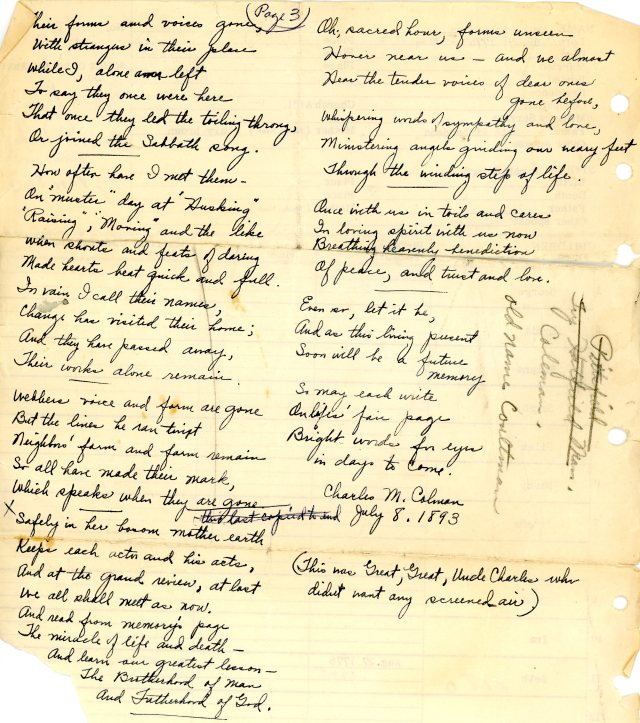 (Page 3)
Their forms and voices gone,
With strangers in their place
While I, alone am left
To say they once were here
That once they led the toiling throng,
Or joined the Sabbath song.
How often have I met them –
On "muster" day at "Husking"
"Raising", "Moving" and the like
When shouts and feats of daring
Made hearts beat quick and full.
In vain I call their names,
Change has visited their home;
And they have passed away,
Their works alone remain.
Webbers voice and form are gone
But the lines he ran twixt
Neighbors' farm and farm remain
So all have made their mark,
Which speaks when they are gone
this last copied to and
X Safely in her bosom mother earth
Keeps each actor and his acts,
And at the grand review, at last
We all shall meet as now.
And read from memory's page
The miracle of life and death –
And learn our greatest lesson –
The Brotherhood of man
And Fatherhood of God.
Oh, sacred hour, forms unseen
Hover near us – and we almost
Hear the tender voices of dear ones
gone before,
Whispering words of sympathy and love,
Ministering angels guiding our weary feet
Through the winding steps of life.
Once with us in toils and cares
In loving spirit with us now
Breathing heavenly benediction
Of peace, and trust and love.
Even so, let it be,
And as this living present
Soon will be a future
memory
So may each write
On lifes' fair page
Bright words for eyes
in days to come.
Charles M. Colman
July 8, 1893
(This was Great, Great, Uncle Charles who
didn't want any screened air)
Colman.
Old names Coultman